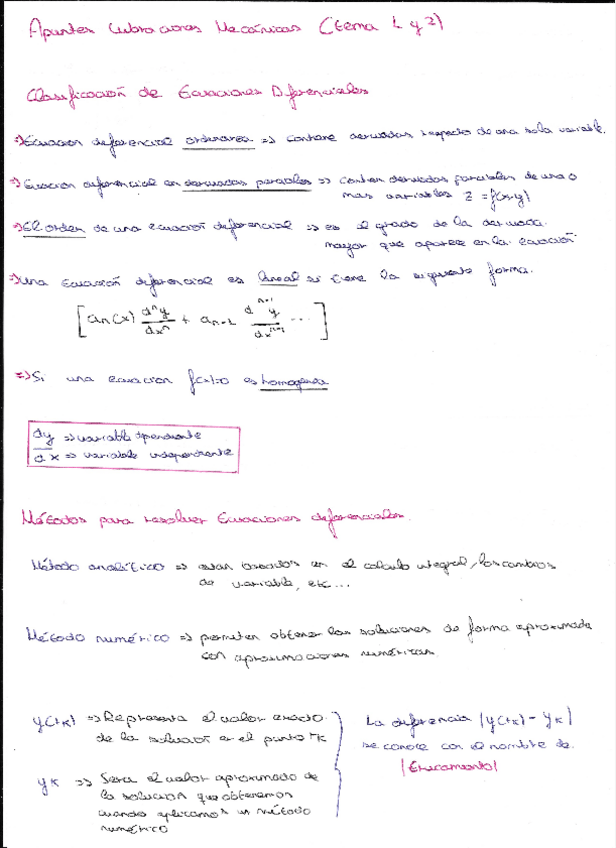 Apuntes Vibraciones Mecánicas (tema 1 y 2)
Clasificación de Ecuaciones Diferenciales
⇒ Ecuacion diferencial ordinaria ⇒ contiene derivadas respecto de una sola variable.
⇒ Ecuacion diferencial en derivadas parciales ⇒ contien derivadas parciales de una o
mas variables z = f(x,y)
⇒ El orden de una ecuación diferencial ⇒ es el grado de la derivada
mayor que aparece en la ecuación
⇒ Una Ecuación diferencial es lineal si tiene la siguiente forma.
[an(x) dⁿy/dxⁿ + an-1 dⁿ⁻¹y/dxⁿ⁻¹ ...]
⇒ Si una ecuacion f(x)=0 es homogenea
dy ⇒ variable dpendiente
dx ⇒ variable independiente
Métodos para resolver Ecuaciones diferenciales.
Método analítico ⇒ estan basados en el calculo integral, los cambios
de variable, etc...
Método numérico ⇒ permiten obtener las soluciones de forma aproximada
con aproximaciones numéricas
y(tk) ⇒ Representa el valor exacto
de la solución en el punto tk
yk ⇒ Sera el valor aproximado de
la solucion que obtenemos
cuando aplicamos un método
numérico
La diferencia |y(tk) - yk|
se conoce con el nombre de